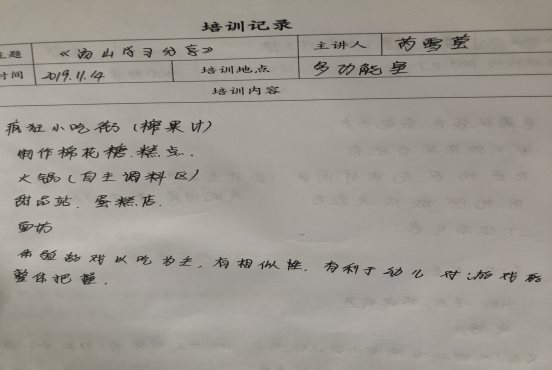 培训记录
主题 《南山学习分享》 主讲人 芮雪莹
时间 2019.11.14 培训地点 多功能室
培训内容
疯狂小吃街(榨果汁)
制作棉花糖.糕点.
火锅(自主调料区)
甜品站.蛋糕店.
面坊
游戏以吃为主,有相似性,有利于幼儿对游戏的
整体把握.